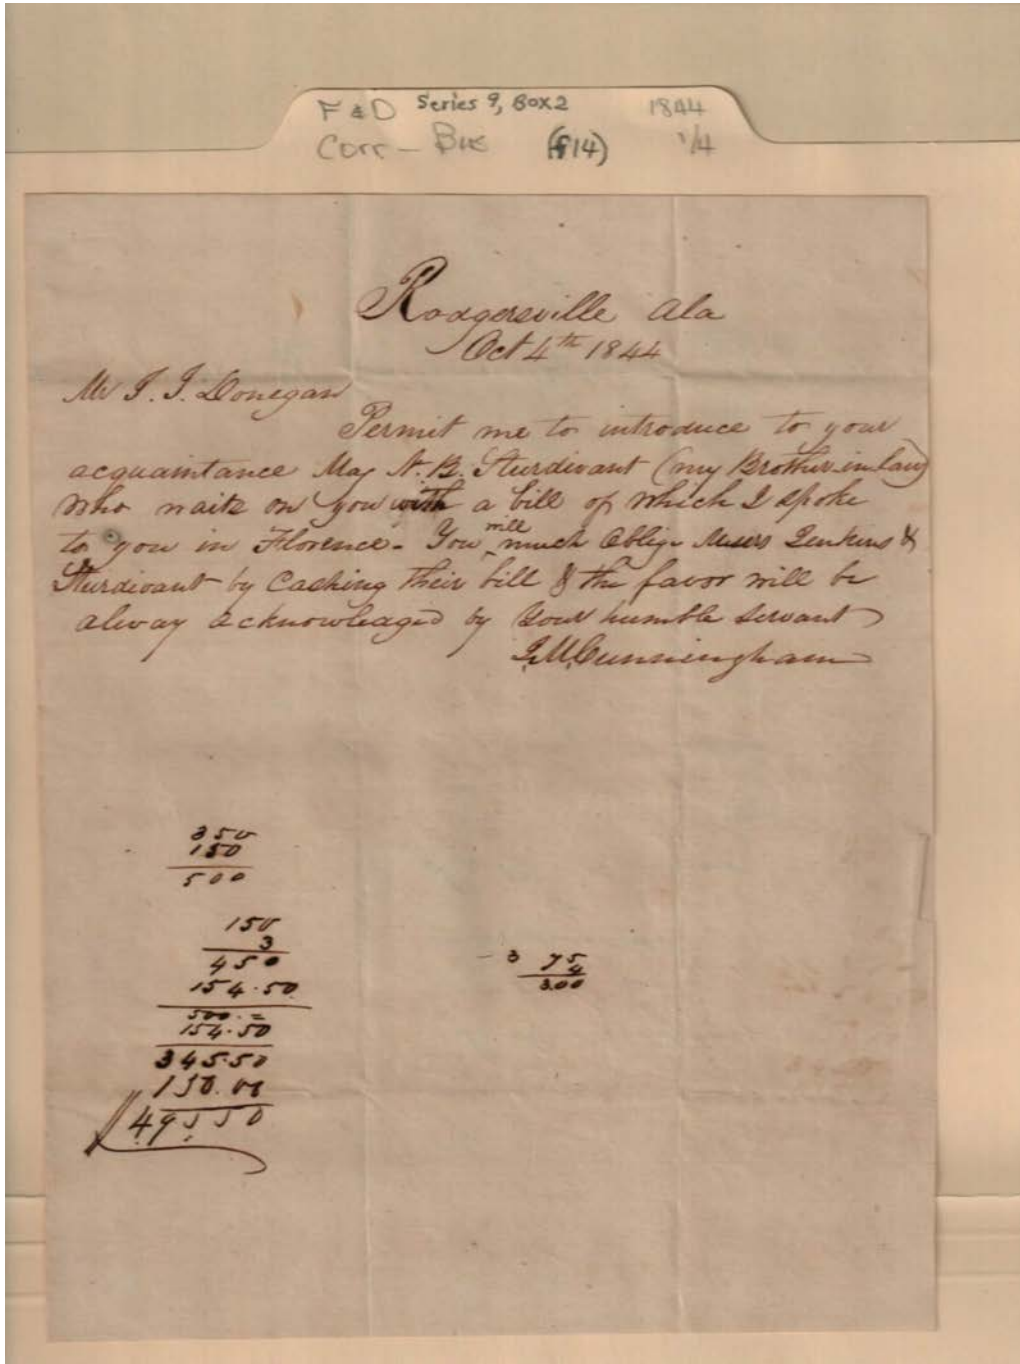 F & D Series 9, Box 2 1844
Corr - Bus (f14) 1/4
Rodgersville Ala
Oct 4th 1844
Mr J. J. Donegan
Permit me to introduce to your
acquaintance Maj N. B. Sturdivant (my Brother in law)
who waits on you with a bill of which I spoke
to you in Florence - You will much Oblige Messrs Jenkins &
Sturdivant by Cashing their bill & the favor will be
alway acknowledged by your humble servant
J. M. Cunningham
350
150
500
150
3
450
154.50
500. =
154.50
345.50
150.00
495 50
3 75
4
3.00